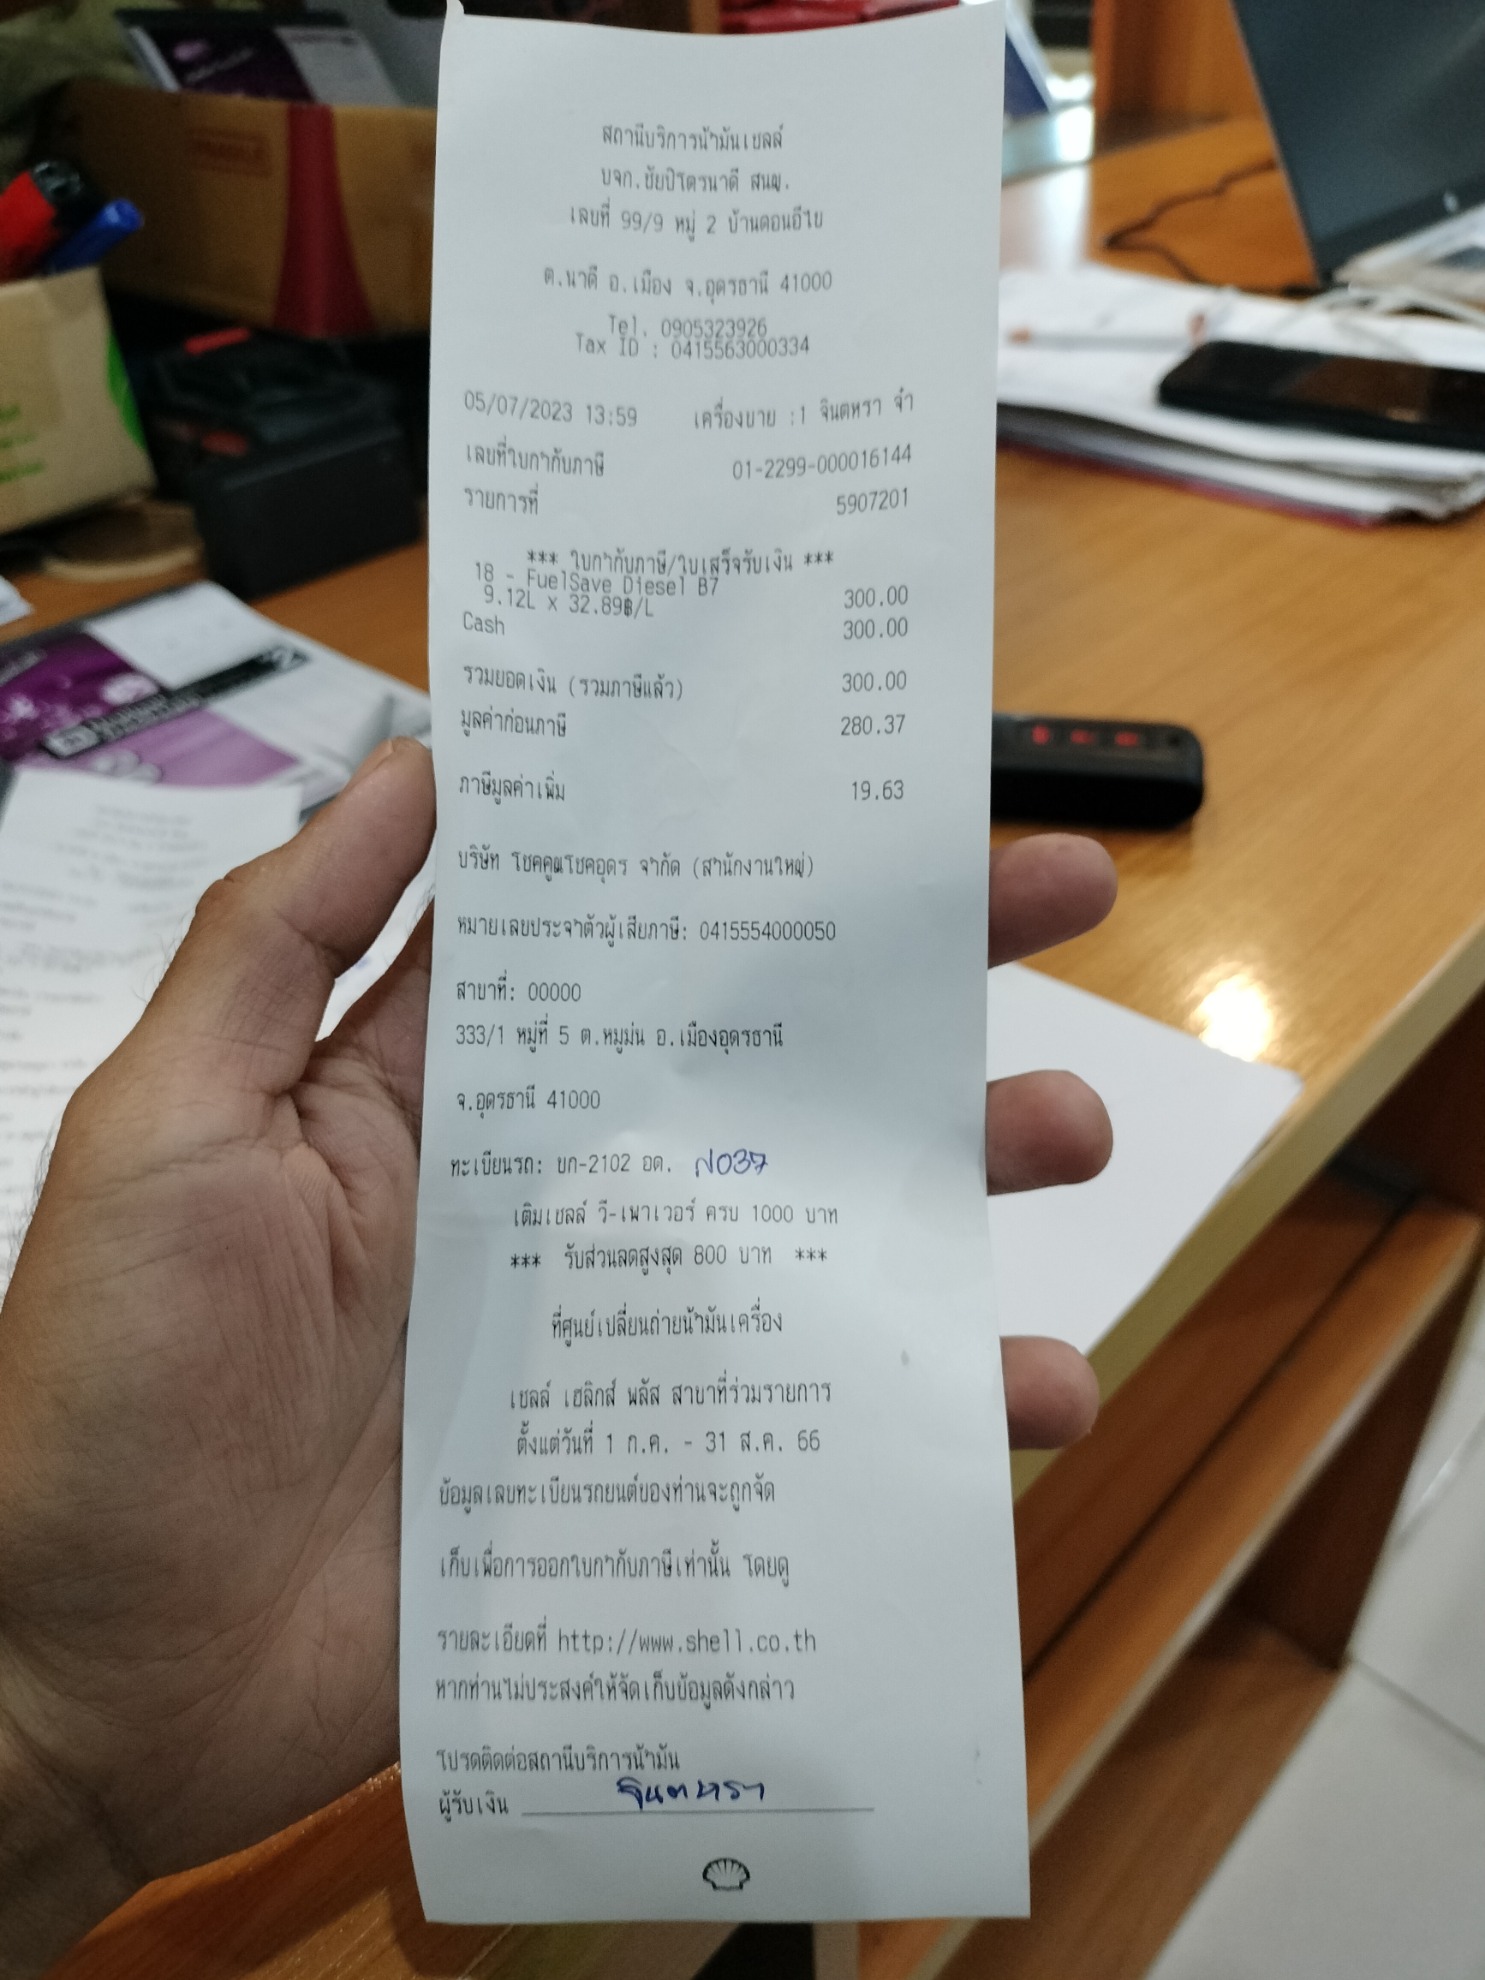 สถานีบริการน้ำมันเชลล์
บจก.ชัยปิโตรนาดี สนญ.
เลขที่ 99/9 หมู่ 2 บ้านดอนอีไข
ต.นาดี อ.เมือง จ.อุดรธานี 41000
Tel. 0905323926
Tax ID : 0415563000334
05/07/2023 13:59 เครื่องขาย :1 จินตหรา จำ
เลขที่ใบกำกับภาษี 01-2299-000016144
รายการที่ 5907201
*** ใบกำกับภาษี/ใบเสร็จรับเงิน ***
18 - FuelSave Diesel B7
9.12L x 32.89฿/L 300.00
Cash 300.00
รวมยอดเงิน (รวมภาษีแล้ว) 300.00
มูลค่าก่อนภาษี 280.37
ภาษีมูลค่าเพิ่ม 19.63
บริษัท โชคคูณโชคอุดร จำกัด (สำนักงานใหญ่)
หมายเลขประจำตัวผู้เสียภาษี: 0415554000050
สาขาที่: 00000
333/1 หมู่ที่ 5 ต.หมูม่น อ.เมืองอุดรธานี
จ.อุดรธานี 41000
ทะเบียนรถ: บก-2102 อด. no37
เติมเชลล์ วี-เพาเวอร์ ครบ 1000 บาท
*** รับส่วนลดสูงสุด 800 บาท ***
ที่ศูนย์เปลี่ยนถ่ายน้ำมันเครื่อง
เชลล์ เฮลิกส์ พลัส สาขาที่ร่วมรายการ
ตั้งแต่วันที่ 1 ก.ค. - 31 ส.ค. 66
ข้อมูลเลขทะเบียนรถยนต์ของท่านจะถูกจัด
เก็บเพื่อการออกใบกำกับภาษีเท่านั้น โดยดู
รายละเอียดที่ http://www.shell.co.th
หากท่านไม่ประสงค์ให้จัดเก็บข้อมูลดังกล่าว
โปรดติดต่อสถานีบริการน้ำมัน
ผู้รับเงิน จินตหรา